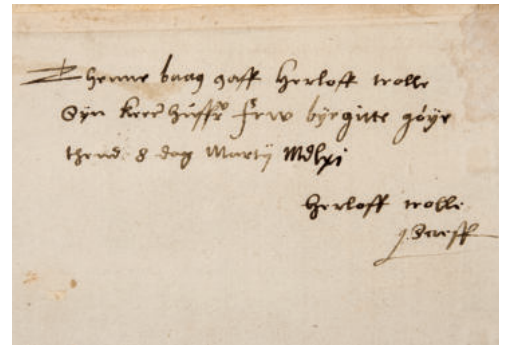 Thenne baag gaff Herloff trolle
Syn kere hussfr frw byrgitte göye
thend 8 dag Martij Mdlxi
Herloff trolle